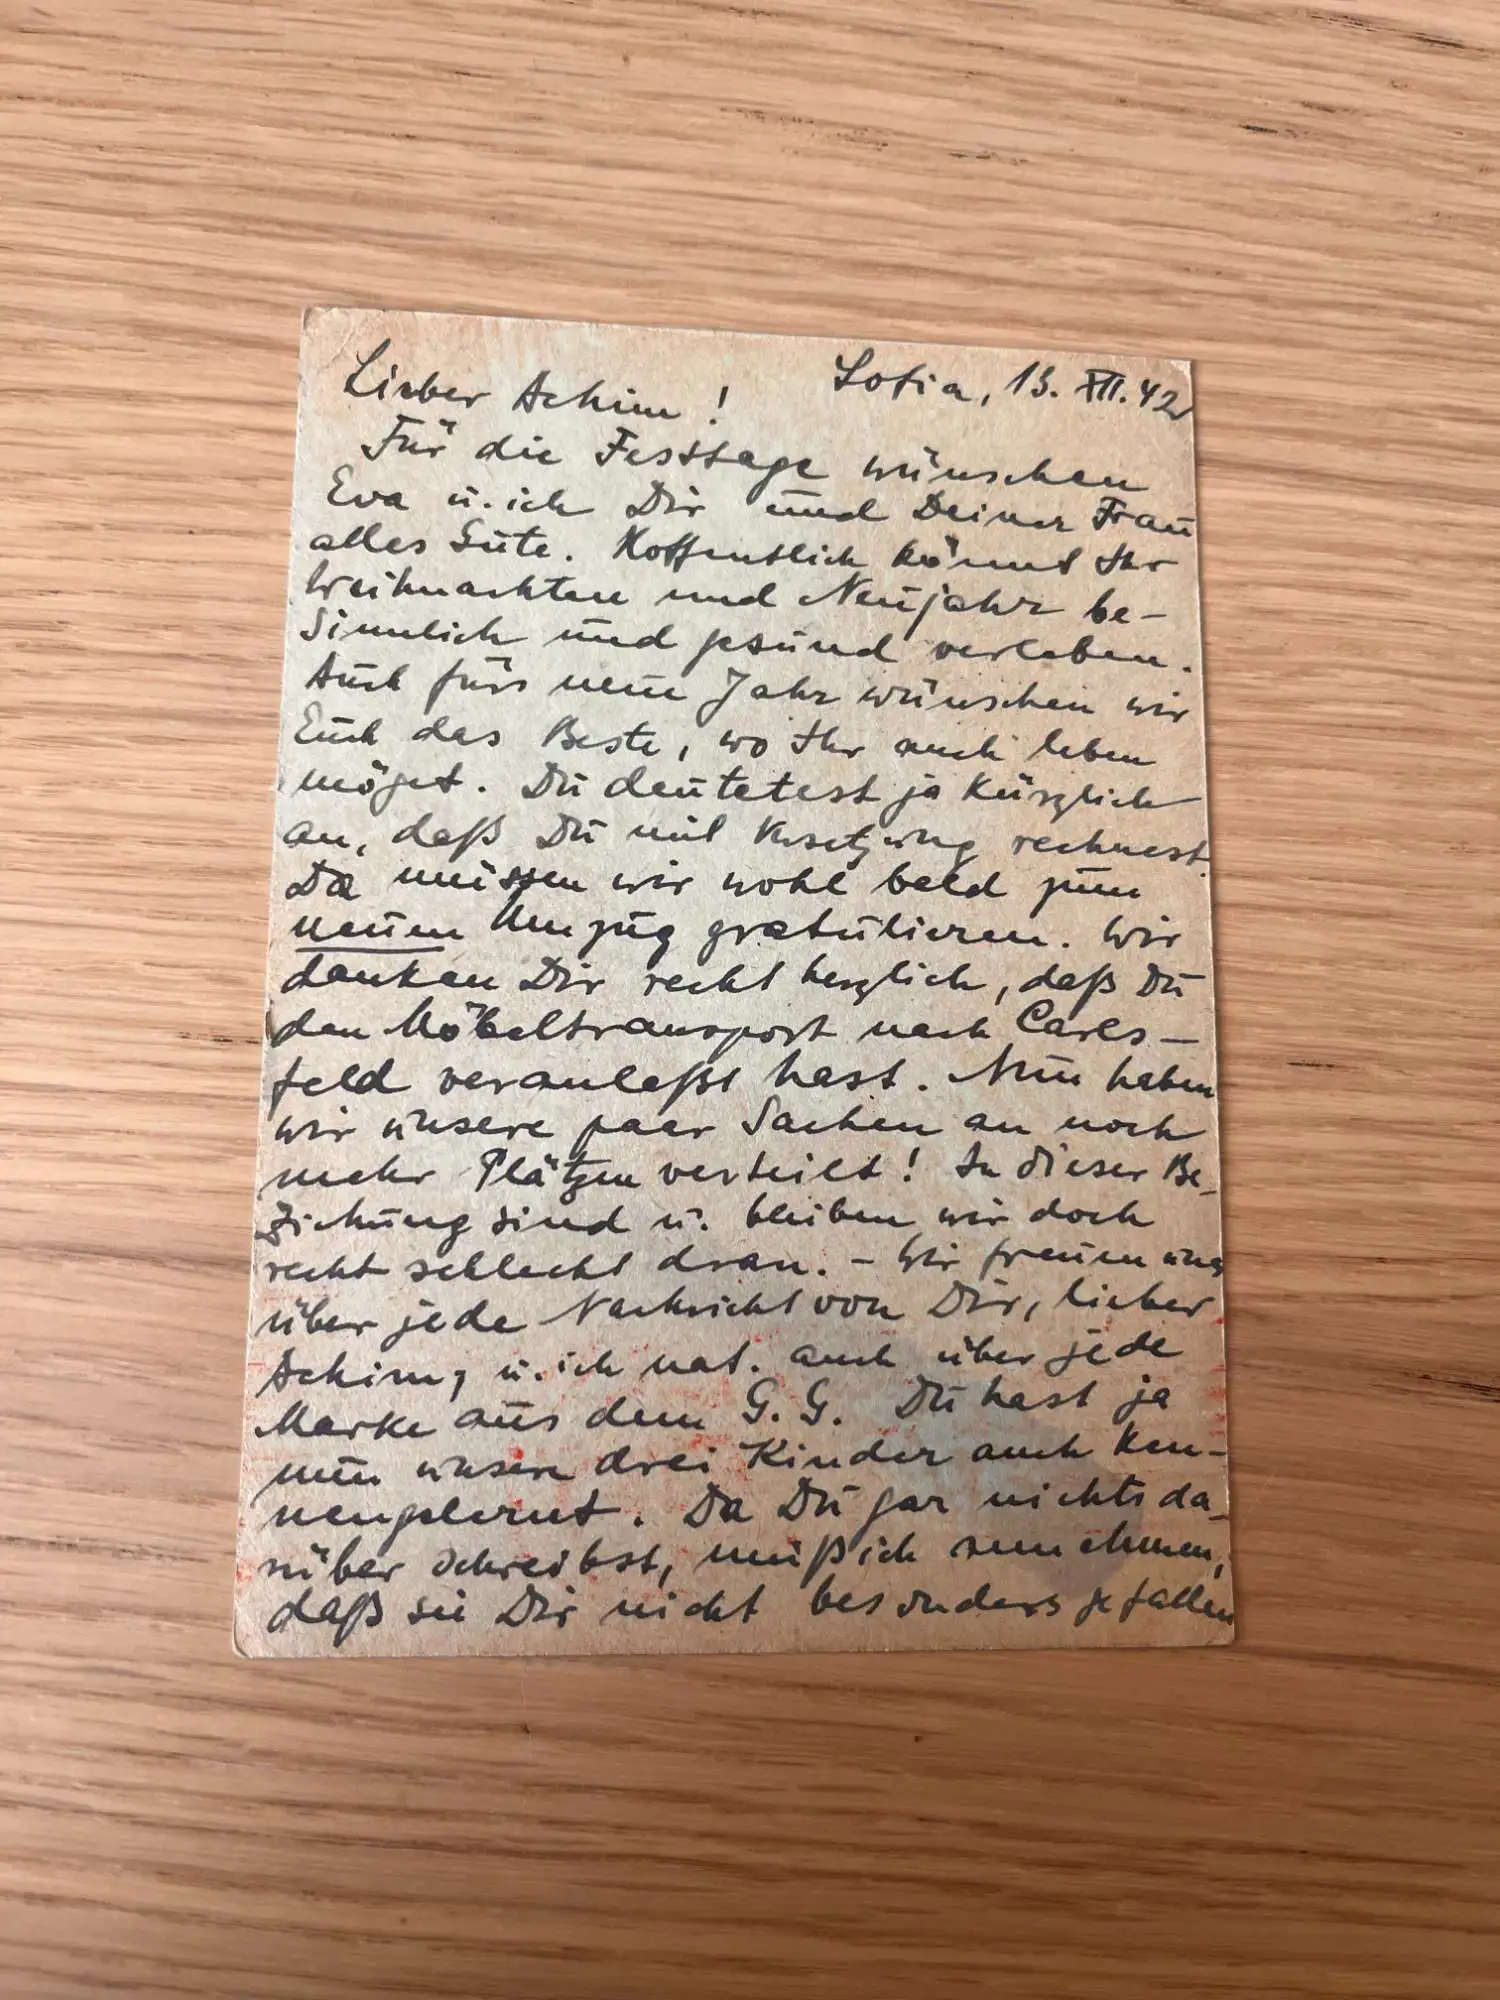 Sofia, 13. XII. 42
Lieber Achim!
Für die Festtage wünschen
Eva u. ich Dir und Deiner Frau
alles Gute. Hoffentlich könnt Ihr
Weihnachten und Neujahr be-
sinnlich und gesund verleben.
Auch fürs neue Jahr wünschen wir
Euch das Beste, wo Ihr auch leben
möget. Du deutetest ja kürzlich
an, daß Du mit Versetzung rechnest.
Da müssen wir wohl bald zum
neuen Umzug gratulieren. Wir
danken Dir recht herzlich, daß Du
den Möbeltransport nach Carls-
feld veranlaßt hast. Nun haben
wir unsere paar Sachen an noch
mehr Plätzen verteilt! In dieser Be-
ziehung sind u. bleiben wir doch
recht schlecht dran. - Wir freuen uns
über jede Nachricht von Dir, lieber
Achim, u. ich nat. auch über jede
Marke aus dem G. G. Du hast ja
nun unsere drei Kinder auch ken-
nengelernt. Da Du gar nichts da-
rüber schreibst, muß ich annehmen,
daß sie Dir nicht besonders gefallen